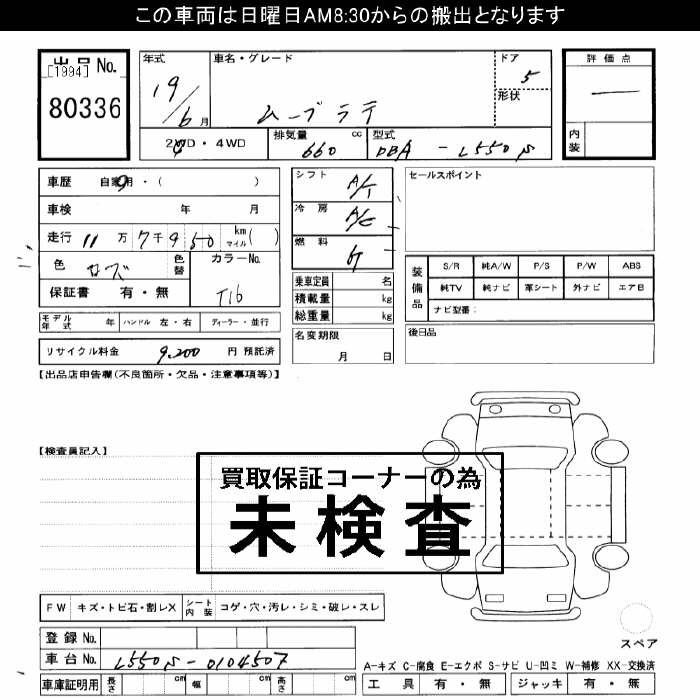 この車両は日曜日AM8:30からの搬出となります
出品No.
[1994]
80336
年式 19/6月
車名・グレード ムーブラテ
ドア 5
形状
評価点 —
内装
2WD・4WD
排気量 660 cc
型式 DBA - L550S
車歴 自家用・( )
車検 年 月
走行 11万7千950 km マイル( )
色 ローズ 色替
カラーNo. T16
保証書 有・無
モデル年式 年 ハンドル 左・右 ディーラー・並行
リサイクル料金 9,200 円 預託済
シフト A/T
冷房 A/C
燃料 G
乗車定員 名
積載量 kg
総重量 kg
名変期限 月 日
セールスポイント
装備品
S/R 純A/W P/S P/W ABS
純TV 純ナビ 革シート 外ナビ エアB
ナビ型番:
後日品
【出品店申告欄(不良箇所・欠品・注意事項等)】
【検査員記入】
買取保証コーナーの為
未検査
FW キズ・トビ石・割レX シート内装 コゲ・穴・汚レ・シミ・破レ・スレ
登録No.
車台No. L550S-0104507
車庫証明用 長さ cm 幅 cm 高さ cm
スペア
A-キズ C-腐食 E-エクボ S-サビ U-凹ミ W-補修 XX-交換済
工具 有・無 ジャッキ 有・無